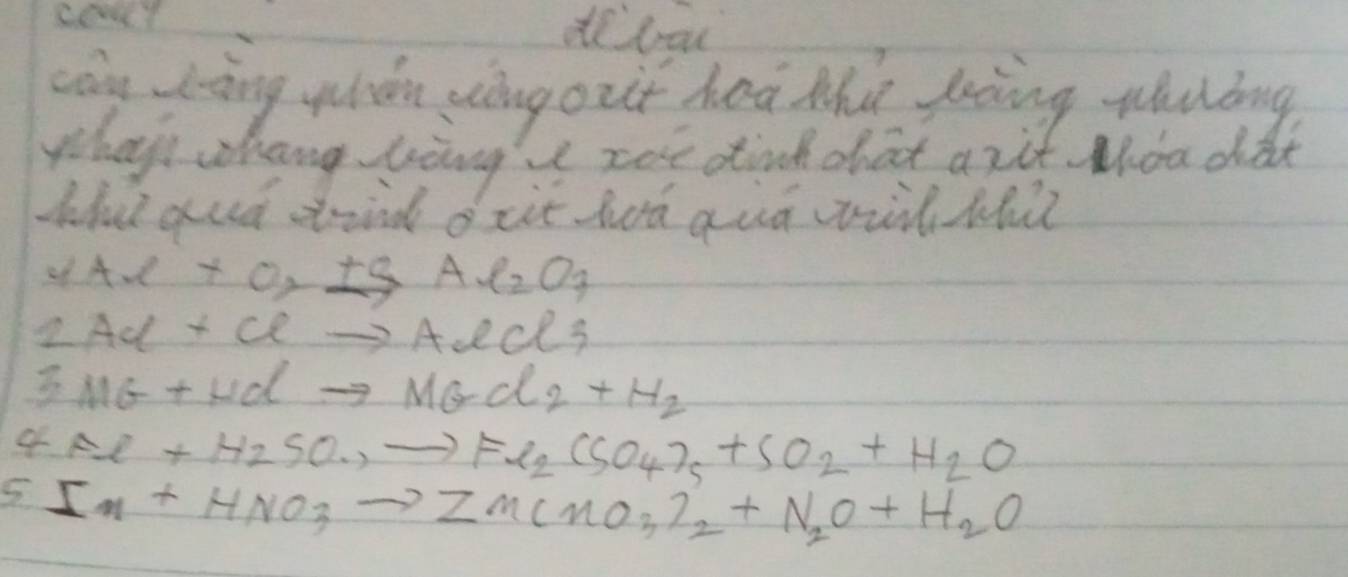 đề bài
cân bằng phản ứng oxit hoá khử bằng phương
pháp thăng bằng e xác định chất oxit hóa chất
khử quá trình oxit hoá quá trình khử
1 Al + O2 → Al2O3
2 Al + Cl → AlCl3
3 MG + HCl → MGCl2 + H2
4 Fe + H2SO4 → Fe2(SO4)3 + SO2 + H2O
5 Zn + HNO3 → Zn(NO3)2 + N2O + H2O